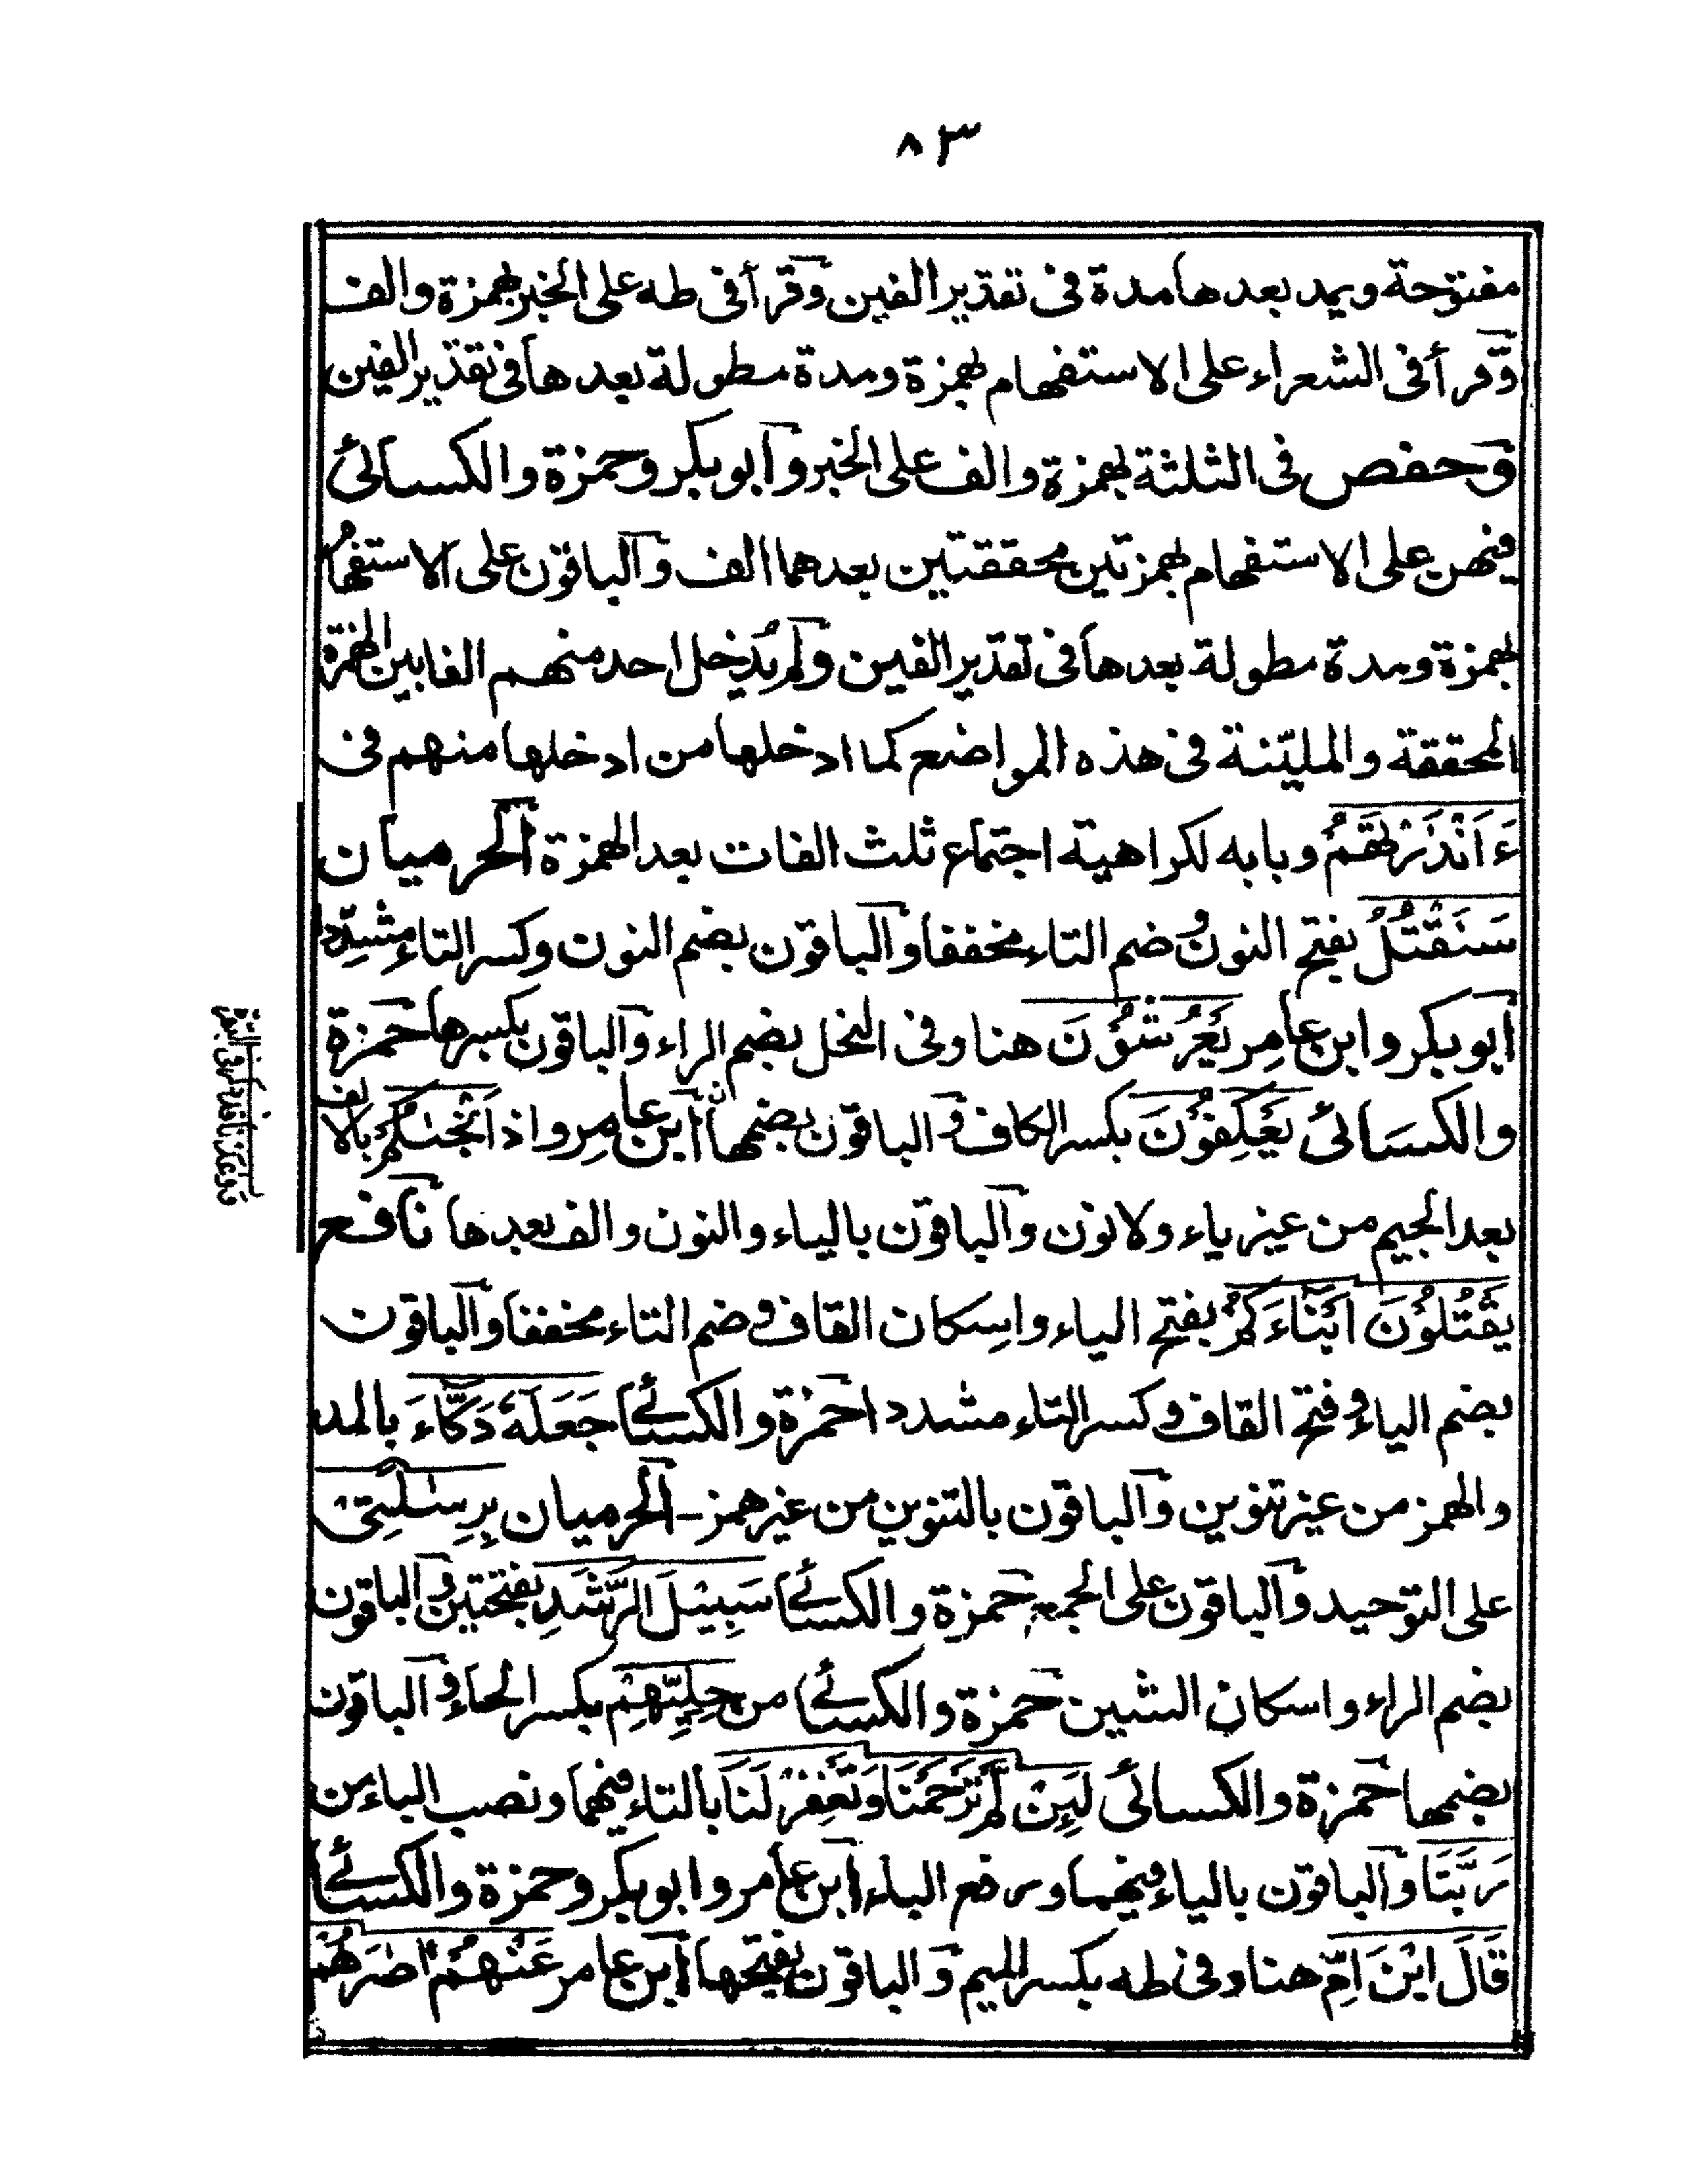 ٨٣
مفتوحة ويمد بعدها مدة فى تقدير الفين وقرأ فى طه على الخبر بهمزة والف
وقرأ فى الشعراء على الاستفهام بهمزة ومدة مطولة بعدها فى تقدير الفين
وحفص فى الثلثة بهمزة والف على الخبر وابوبكر وحمزة والكسائى
فيهن على الاستفهام بهمزتين محققتين بعدهما الف والباقون على الاستفهام
بهمزة ومدة مطولة بعدها فى تقدير الفين ولم يُدخل احد منهم الفا بين الهمزة
المحققة والمليّنة فى هذه المواضع كما ادخلها من ادخلها منهم فى
ءَاَنْذَرْتَهُمْ وبابه لكراهية اجتماع ثلث الفات بعد الهمزة الحرميان
سَنَقْتُلُ بفتح النون وضم التاء مخففا والباقون بضم النون وكسر التاء مشدِّدا
ابوبكر وابن عامر يَعْرُشُوْنَ هنا وفى النحل بضم الراء والباقون بكسرها حمزة
والكسائى يَعْكِفُوْنَ بكسر الكاف والباقون بضمها ابن عامر واذ اَنْجٰىكُمْ بالف
بعد الجيم من غير ياء ولا نون والباقون بالياء والنون والف بعدها نافع
يَقْتُلُوْنَ اَبْنَاءَكُمْ بفتح الياء واسكان القاف وضم التاء مخففا والباقون
بضم الياء وفتح القاف وكسر التاء مشددا حمزة والكسائى جَعَلَهٗ دَكَّاءَ بالمد
والهمز من غير تنوين والباقون بالتنوين من غير همز - الحرميان بِرِسٰلَتِىْ
على التوحيد والباقون على الجمع حمزة والكسائى سَبِيْلَ الرَّشَدِ بفتحتين والباقون
بضم الراء واسكان الشين حمزة والكسائى من حِلِيِّهِمْ بكسر الحاء والباقون
بضمها حمزة والكسائى لَئِنْ لَّمْ تَرْحَمْنَا وَتَغْفِرْ لَنَا بالتاء فيهما ونصب الباء من
رَبَّنَا والباقون بالياء فيهما ورفع الباء ابن عامر وابوبكر وحمزة والكسائى
قَالَ ابْنَ اُمِّ هنا وفى طه بكسر الميم والباقون بفتحها ابن عامر عَنْهُمْ اٰصَرَهُمْ